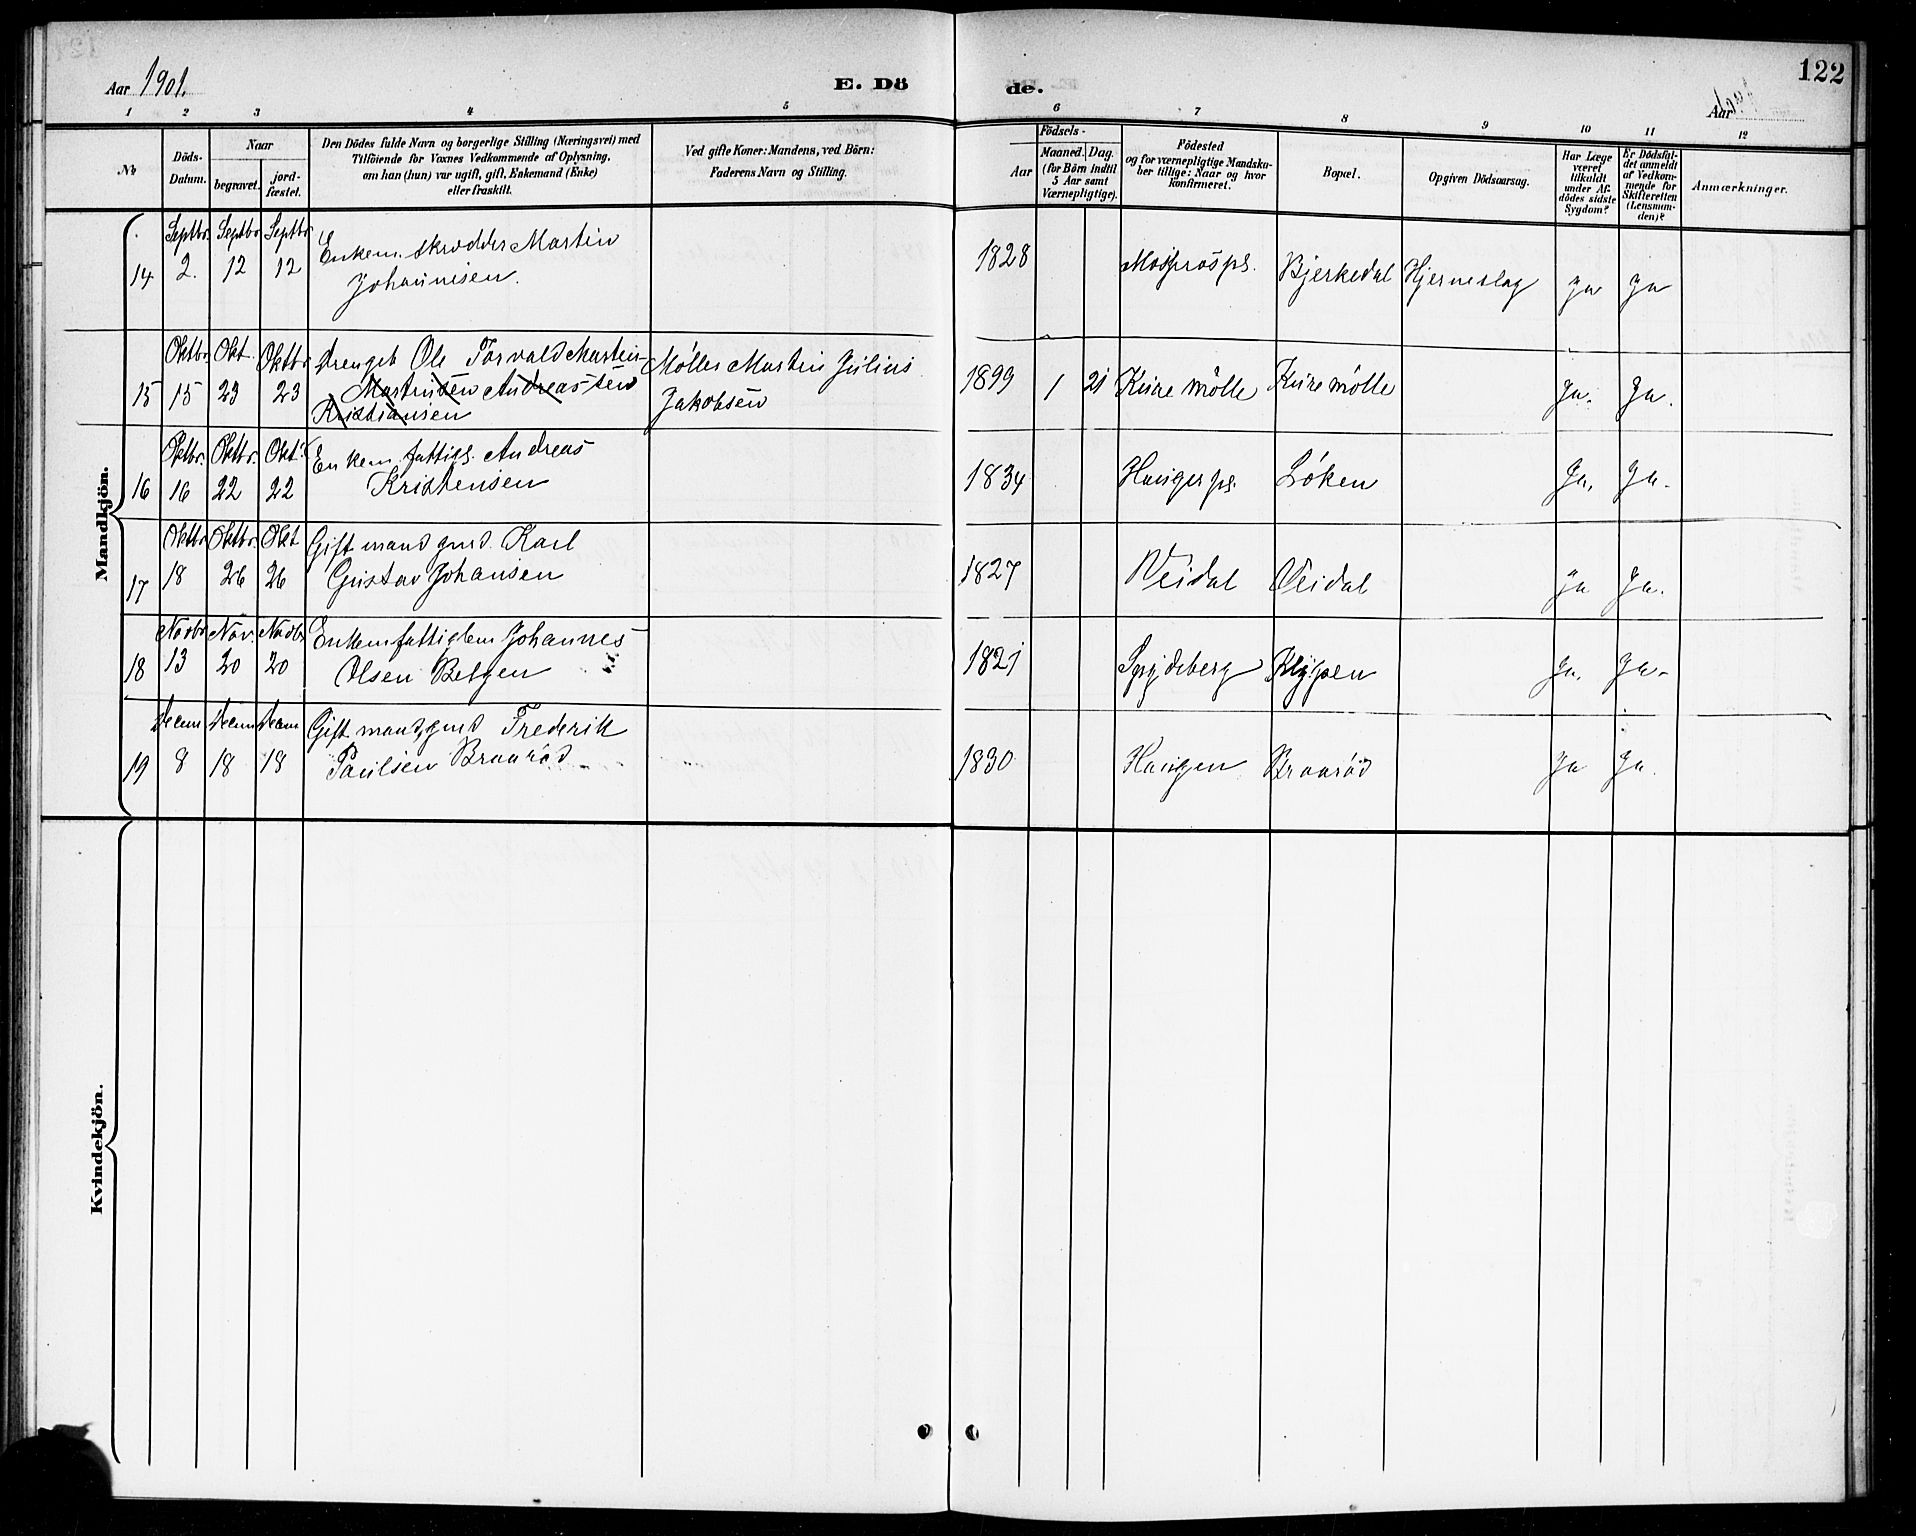 122
Aar 1901.
E. Dö
de.
Aar
1 2 3 4 5 6 7 8 9 10 11 12
No
Döds-Datum.
Naar
begravet.
jord-fæstet.
Den Dödes fulde Navn og borgerlige Stilling (Næringsvei) med
Tilföiende for Voxnes Vedkommende af Oplysning,
om han (hun) var ugift, gift, Enkemand (Enke)
eller fraskilt.
Ved gifte Koner: Mandens, ved Börn:
Faderens Navn og Stilling.
Födsels-
Aar
Maaned. Dag.
(for Börn indtil
5 Aar samt
Værnepligtige).
Födested
og for værnepligtige Mandska-
ber tillige: Naar og hvor
konfirmeret.
Bopæl.
Opgiven Dödsaarsag.
Har Læge
været
tilkaldt
under Af-
dödes sidste
Sygdom?
Er Dödsfal-
det anmeldt
af Vedkom-
mende for
Skifteretten
(Lensman-
den)?
Anmærkninger.
Mandkjön.
Septbr. Septbr Septbr Enkem. skrædder Martin
14 2. 12 12 Johannisen. 1828 Bjerkedal Hjerneslag ja ja
Oktbr. Okt. Oktbr. Drengeb Ole Torvald Martin- Møller Martin Julius
15 15 23 23 Martinsen Andreassen Jakobsen 1899 1 21 Kure mölle Kure mölle Ja. Ja.
Kristiansen
Oktbr. Oktbr. Okt. Enkem. fattigl. Andreas
16 16 22 22 Kristensen 1834 Haugerps. Löken Ja. Ja.
Oktbr Oktbr. Okt Gift mand gmd. Karl
17 18 26 26 Gustav Johansen 1827 Veidal Veidal Ja Ja.
Novbr Nov. Novbr Enkem fattiglem Johannes
18 13 20 20 Olsen 1821 Spydeberg Klypen Ja. Ja.
Decem Decem Decem Gift mand, gmd Frederik
19 8 18 18 Paulsen Braaröd 1830 Haugen Braaröd Ja Ja.
Kvindekjön.